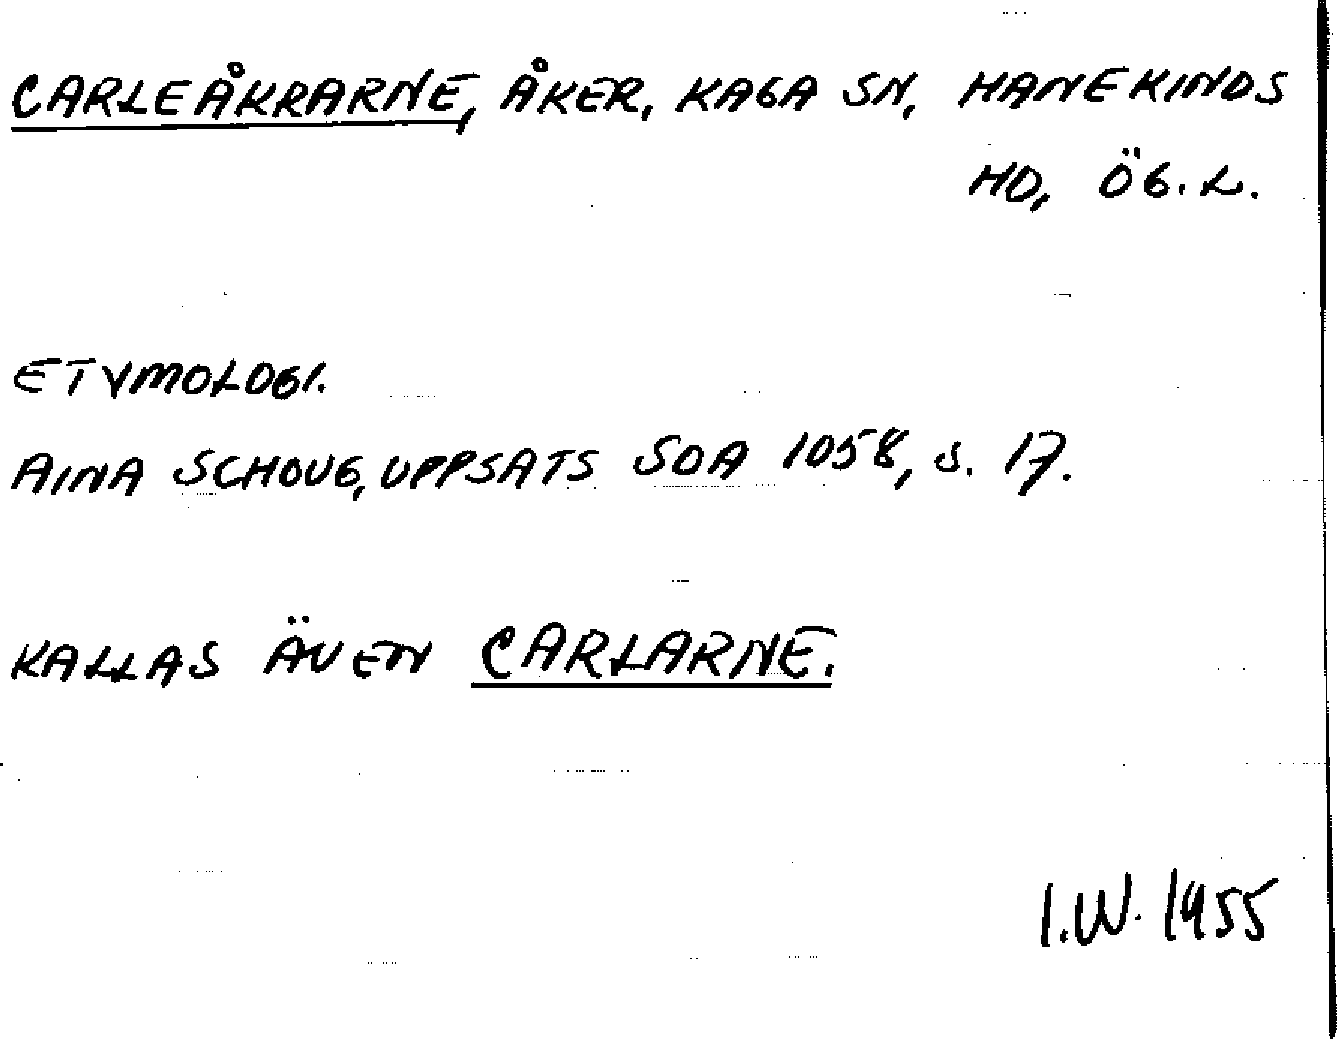 CARLEÅKRARNE, ÅKER, KAGA SN, HANEKINDS
HD, ÖG. L.
ETYMOLOGI.
AINA SCHOUG, UPPSATS SOA 1058, S. 17.
KALLAS ÄVEN CARLARNE.
I.W. 1955